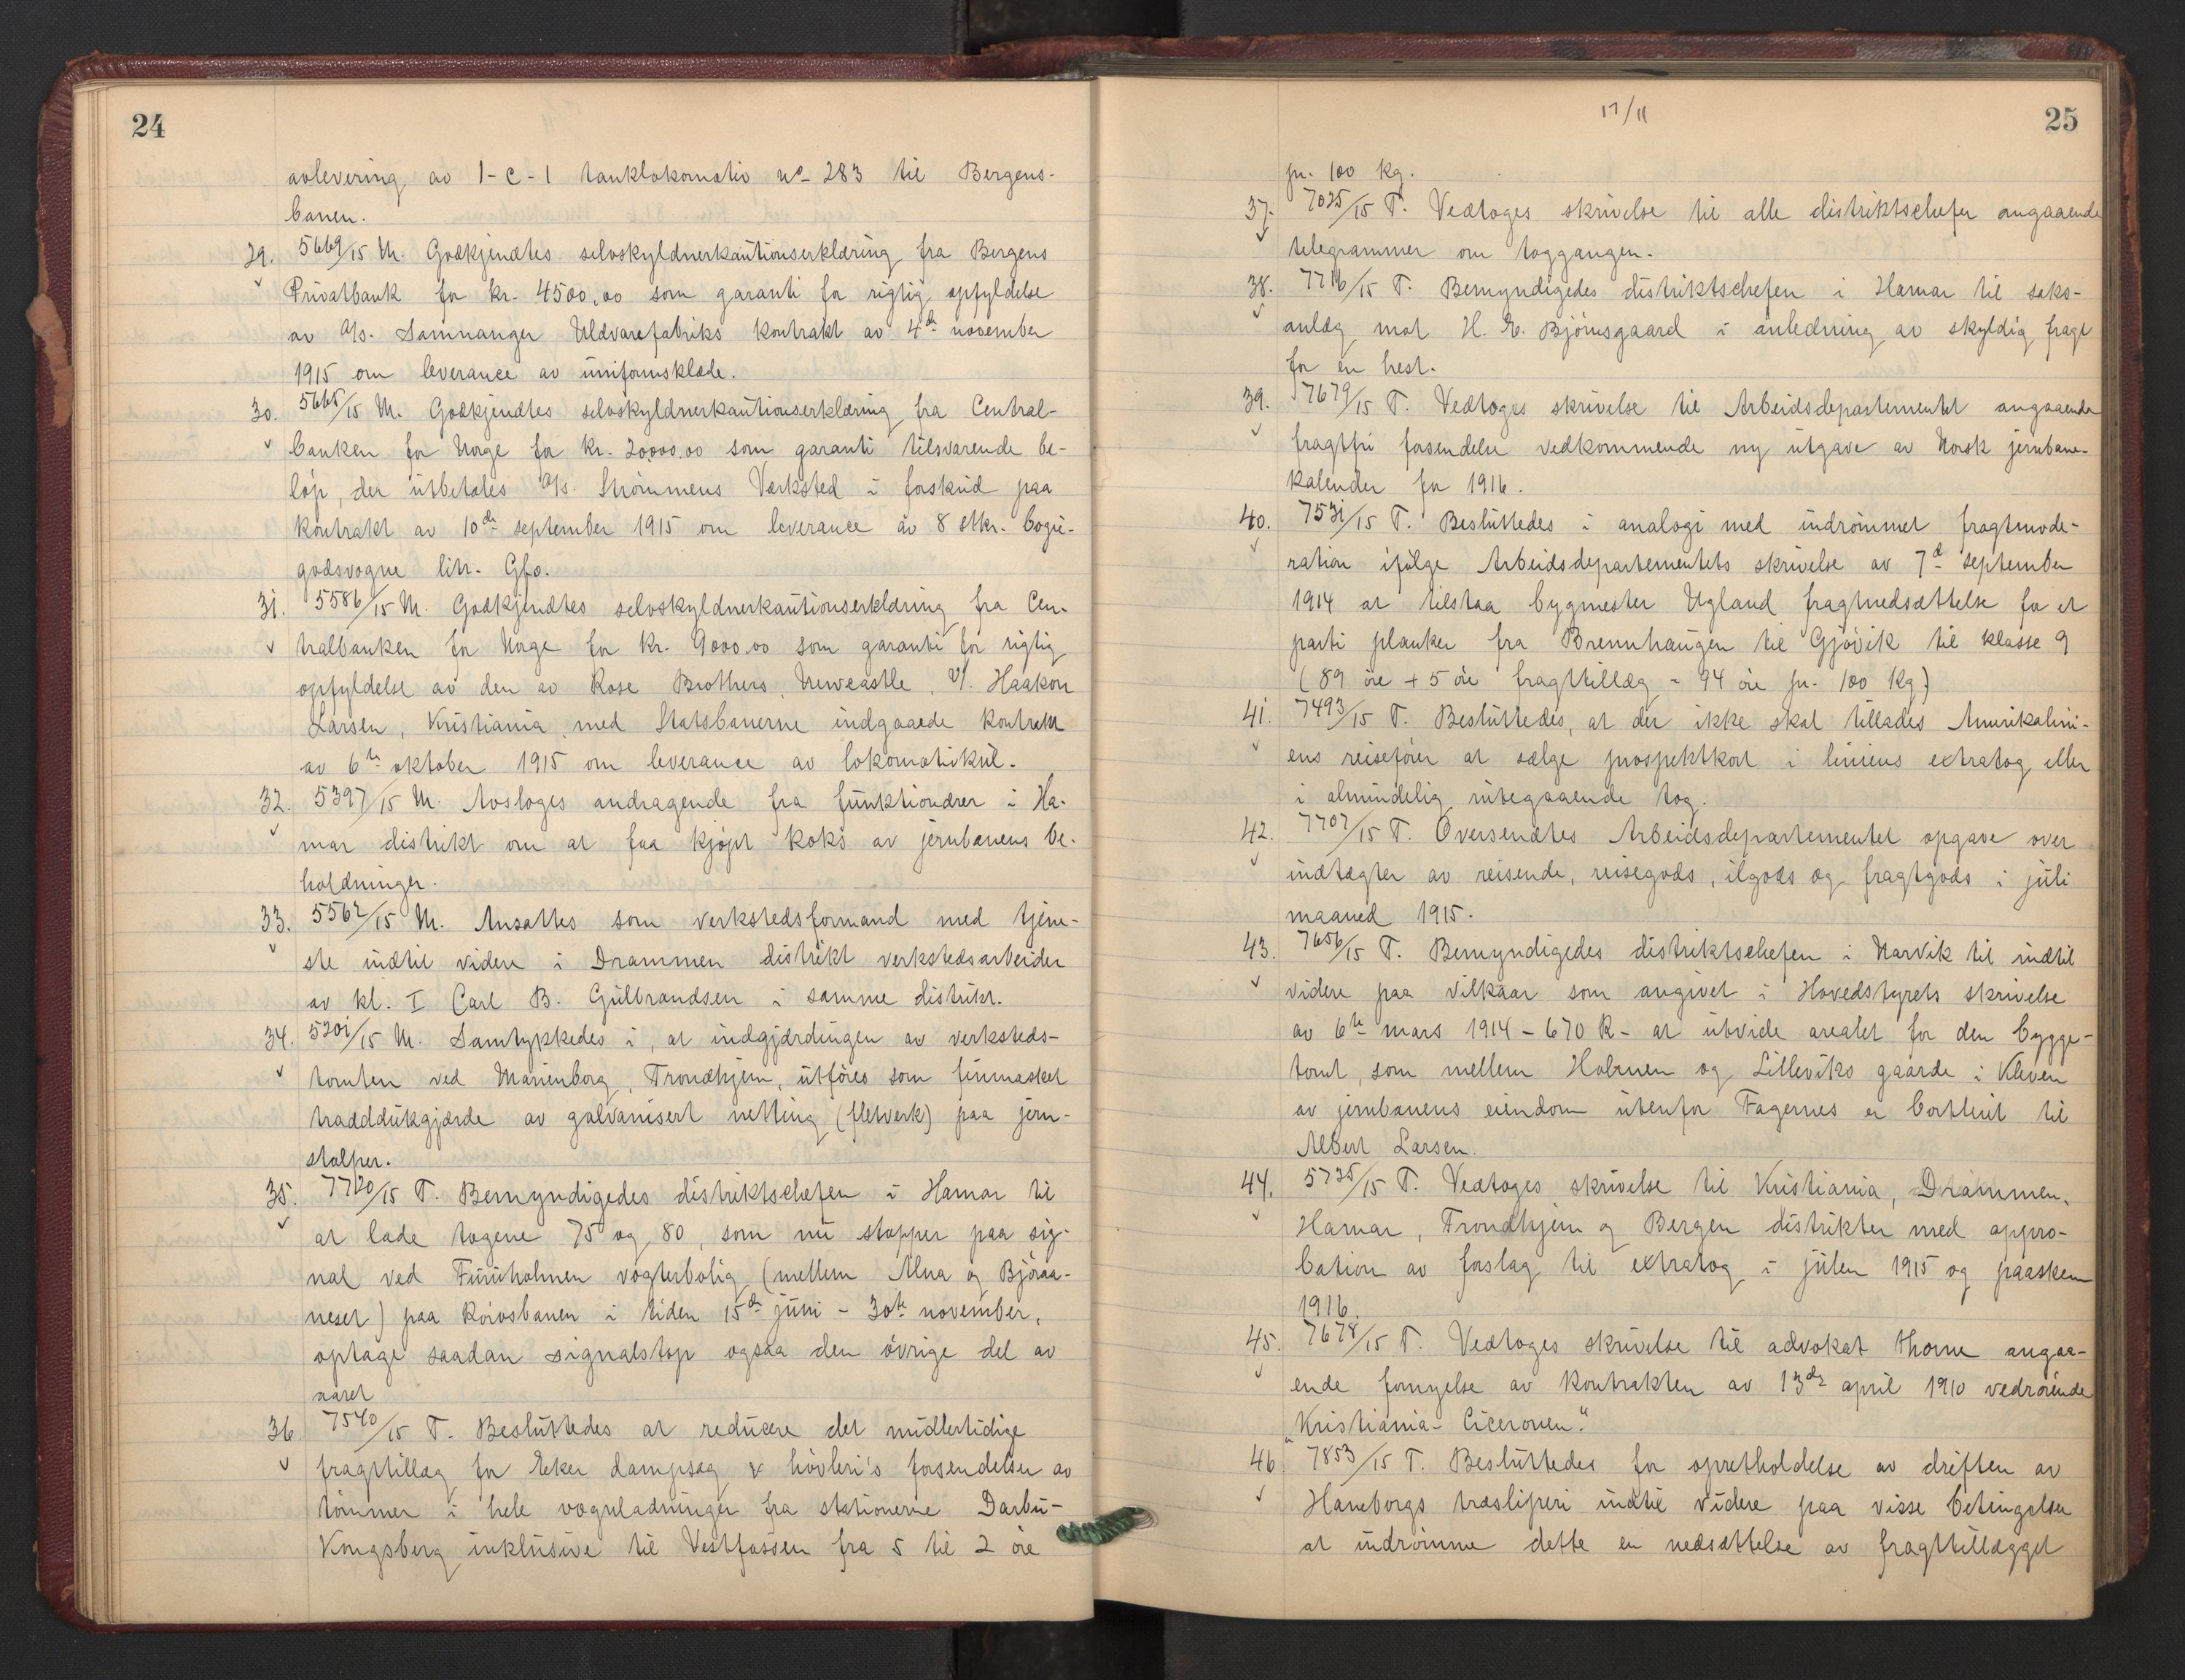 24
avlevering av 1-C-1 tanklokomotiv no 283 til Bergens-
banen.
29. 5669/15 M. Godkjendtes selvskyldnerkautionserklæring fra Bergens
Privatbank for kr. 4500,00 som garanti for rigtig opfyldelse
av A/s. Samnanger Uldvarefabriks kontrakt av 4de november
1915 om leverance av uniformsklæde.
30. 5665/15 M. Godkjendtes selvskyldnerkautionserklæring fra Central-
banken for Norge for kr. 20000.00 som garanti tilsvarende be-
løp, der utbetales A/s. Strømmens Værksted i forskud paa
kontrakt av 10de september 1915 om leverance av 8 stkr. bogie-
godsvogne litr. Gfo.
31. 5586/15 M. Godkjendtes selvskyldnerkautionserklæring fra Cen-
tralbanken for Norge for kr. 9000.00 som garanti for rigtig
opfyldelse av den av Rose Brothers, Newcastle, v/. Haakon
Larsen, Kristiania, med Statsbanerne indgaaede kontrakt
av 6te oktober 1915 om leverance av lokomotivkul.
32. 5397/15 M. Avsloges andragende fra funktionærer i Ha-
mar distrikt om at faa kjøpt koks av jernbanens be-
holdninger.
33. 5562/15 M. Ansattes som verkstedsformand med tjene-
ste indtil videre i Drammen distrikt verkstedsarbeider
av kl. I Carl B. Gulbrandsen i samme distrikt.
34. 5201/15 M. Samtykkedes i, at indgjærdingen av verksteds-
tomten ved Marienborg, Trondhjem, utføres som finmasket
traadddukgjærde av galvanisert netting (fletverk) paa jern-
stolper.
35. 7720/15 T. Bemyndigedes distriktschefen i Hamar til
at lade togene 75 og 80, som nu stopper paa sig-
nal ved Furuholmen vogterbolig (mellem Alna og Bjøraa-
neset) paa Rørosbanen i tiden 15de juni - 30te november,
optage saadan signalstop ogsaa den øvrige del av
aaret
36. 7540/15 T. Besluttedes at reducere det midlertidige
fragttillæg for Eker dampsag & høvleri's forsendelser av
tømmer i hele vognladninger fra stationerne Darbu-
Kongsberg inklusive til Vestfossen fra 5 til 2 øre
17/11
25
pr. 100 kg.
37. 7025/15 T. Vedtoges skrivelse til alle distriktschefer angaaende
telegrammer om toggangen.
38. 7716/15 T. Bemyndigedes distriktschefen i Hamar til saks-
anlæg mot H. E. Bjørnsgaard i anledning av skyldig fragt
for en hest.
39. 7679/15 T. Vedtoges skrivelse til Arbeidsdepartementet angaaende
fragtfri forsendelse vedkommende ny utgave av Norsk jernbane-
kalender for 1916.
40. 7531/15 T. Besluttedes i analogi med indrømmet fragtmode-
ration ifølge Arbeidsdepartementets skrivelse av 7de september
1914 at tilstaa bygmester Ugland fragtnedsættelse for et
parti planker fra Brennhaugen til Gjøvik til klasse 9
(89 øre + 5 øre fragttillæg = 94 øre pr. 100 kg)
41. 7493/15 T. Besluttedes, at der ikke skal tillades Amerikalini-
ens reisefører at sælge prospektkort i liniens extratog eller
i almindelig rutegaaende tog.
42. 7707/15 T. Oversendtes Arbeidsdepartementet opgave over
indtægter av reisende, reisegods, ilgods og fragtgods i juli
maaned 1915.
43. 7656/15 T. Bemyndigedes distriktschefen i Narvik til indtil
videre paa vilkaar som angivet i Hovedstyrets skrivelse
av 6te mars 1914 - 670 R - at utvide arealet for den bygge-
tomt, som mellem Holmen og Lilleviks gaarde i Kleven
av jernbanens eiendom utenfor Fagernes er bortleiet til
Albert Larsen.
44. 5735/15 T. Vedtoges skrivelse til Kristiania, Drammen,
Hamar, Trondhjem og Bergen distrikter med appro-
bation av forslag til extratog i julen 1915 og paasken
1916.
45. 7678/15 T. Vedtoges skrivelse til advokat Thorne angaa-
ende fornyelse av kontrakten av 13de april 1910 vedrørende
"Kristiania-Ciceronen."
46. 7853/15 T. Besluttedes for opretholdelse av driften av
Haneborgs træsliperi indtil videre paa visse betingelser
at indrømme dette en nedsættelse av fragttillægget